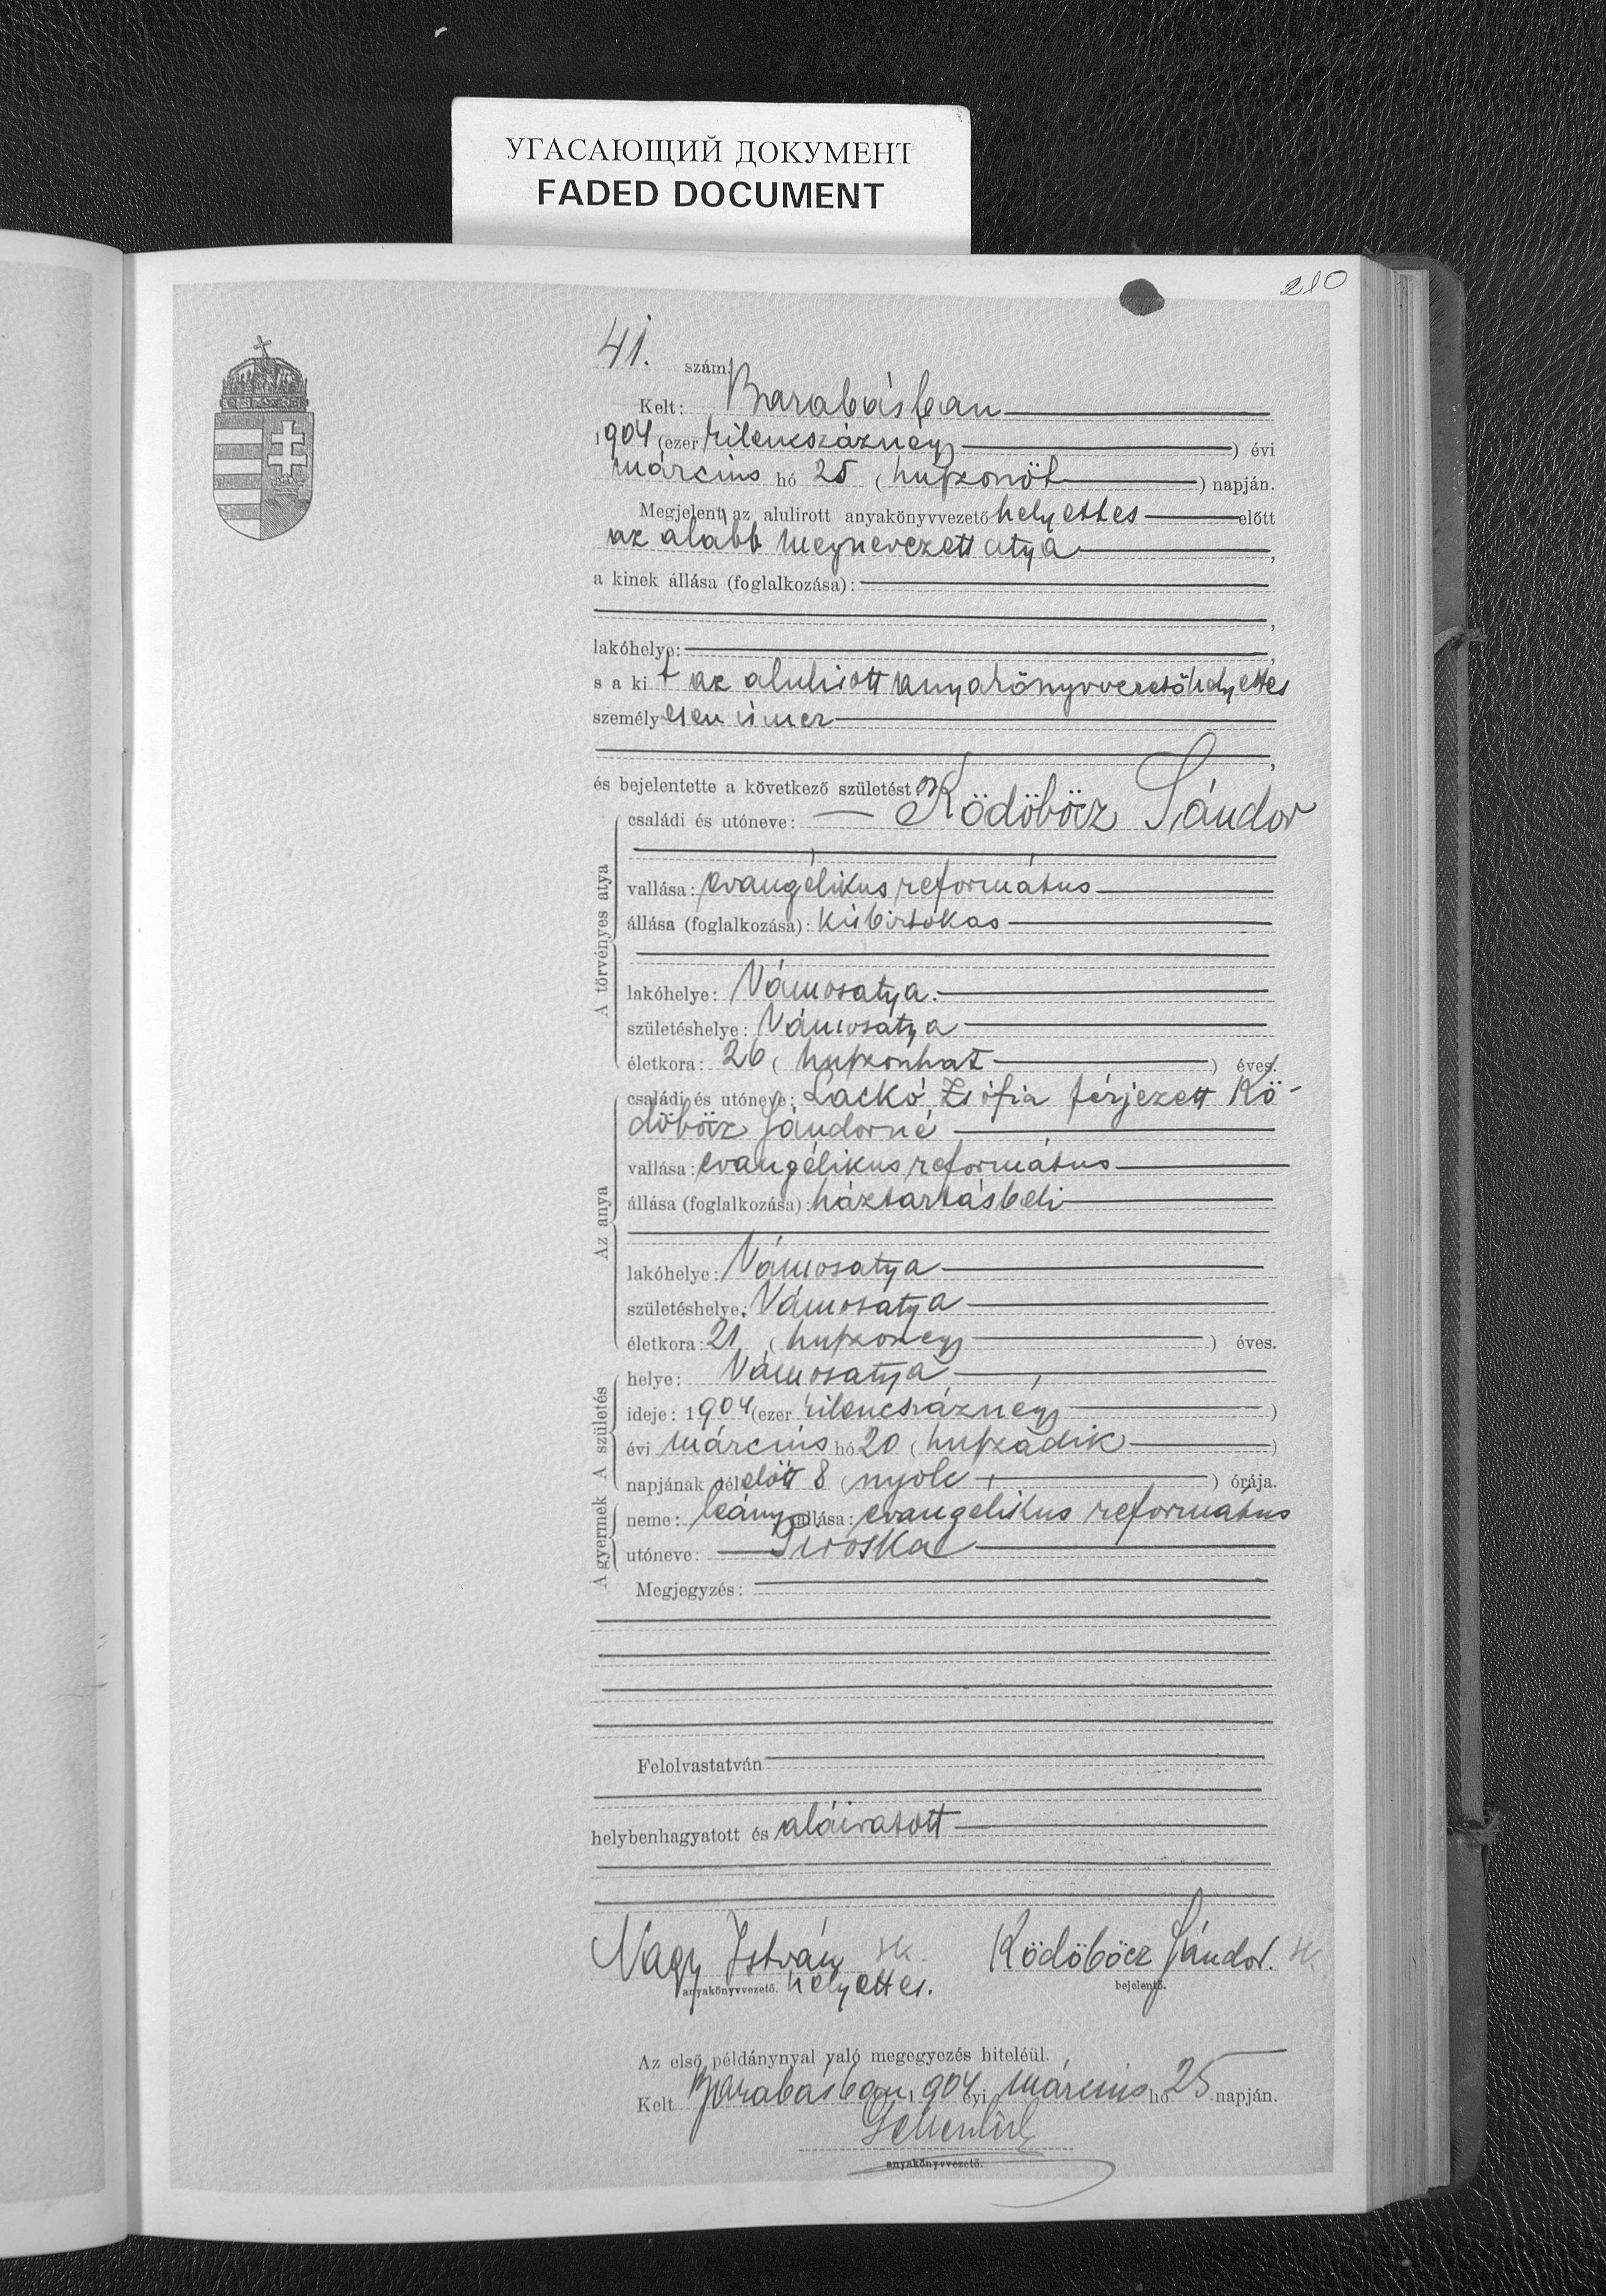 УГАСАЮЩИЙ ДОКУМЕНТ
FADED DOCUMENT
210
41. szám.
Kelt: Barabásban
1904 (ezer kilencszáznégy) évi
március hó 25 (huszonöt) napján.
Megjelent az alulirott anyakönyvvezető helyettes előtt
az alább megnevezett atya,
a kinek állása (foglalkozása):
,
lakóhelye:
s a kit az alulirott anyakönyvvezetőhelyettes
személyesen ismer
,
és bejelentette a következő születést:
A törvényes atya
családi és utóneve: Ködöböcz Sándor
vallása: evangélikus református
állása (foglalkozása): kisbirtokas
lakóhelye: Vámosatya.
születéshelye: Vámosatya
életkora: 26 (huszonhat) éves.
Az anya
családi és utóneve: Lackó Zsófia férjezett Kö-
döböcz Sándorné
vallása: evangélikus református
állása (foglalkozása): háztartásbeli
lakóhelye: Vámosatya
születéshelye: Vámosatya
életkora: 21 (huszonegy) éves.
A születés
helye: Vámosatya
ideje: 1904 (ezer kilencszáznégy)
évi március hó 20 (huszadik)
napjának délelőtt 8 (nyolc) órája.
A gyermek
neme: leány vallása: evangelikus református
utóneve: Piroska
Megjegyzés:
Felolvastatván
helybenhagyatott és aláiratott
Nagy István sk. Ködöböcz Sándor. sk.
anyakönyvvezető. helyettes. bejelentő.
Az első példánynyal való megegyezés hiteléül.
Kelt Barabásban 1904 évi március hó 25 napján.
anyakönyvvezető.